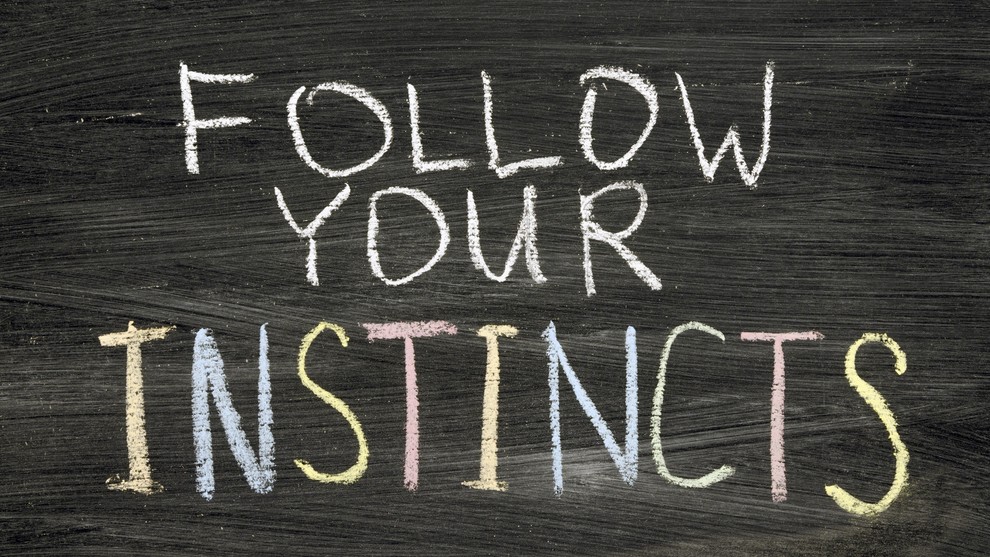 FOLLOW
YOUR
INSTINCTS